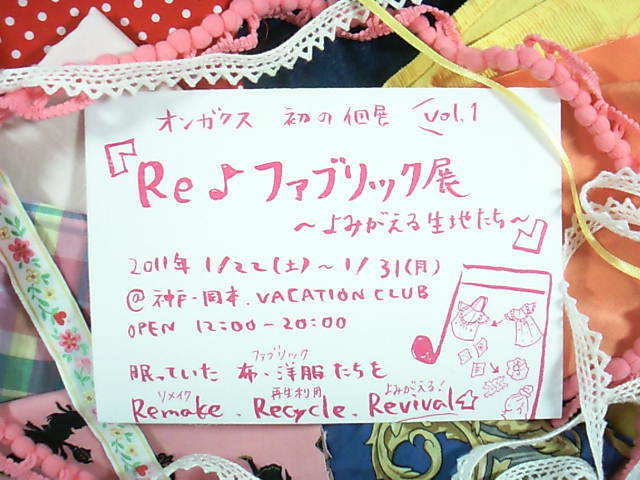 オンガクス 初の個展 vol.1
『Re♪ファブリック展
〜よみがえる生地たち〜』
2011年 1/22(土)〜1/31(月)
@神戸・岡本.VACATION CLUB
OPEN 12:00-20:00
ファブリック
眠っていた 布・洋服たちを
リメイク 再生利用 よみがえる!
Remake、Recycle、Revival☆